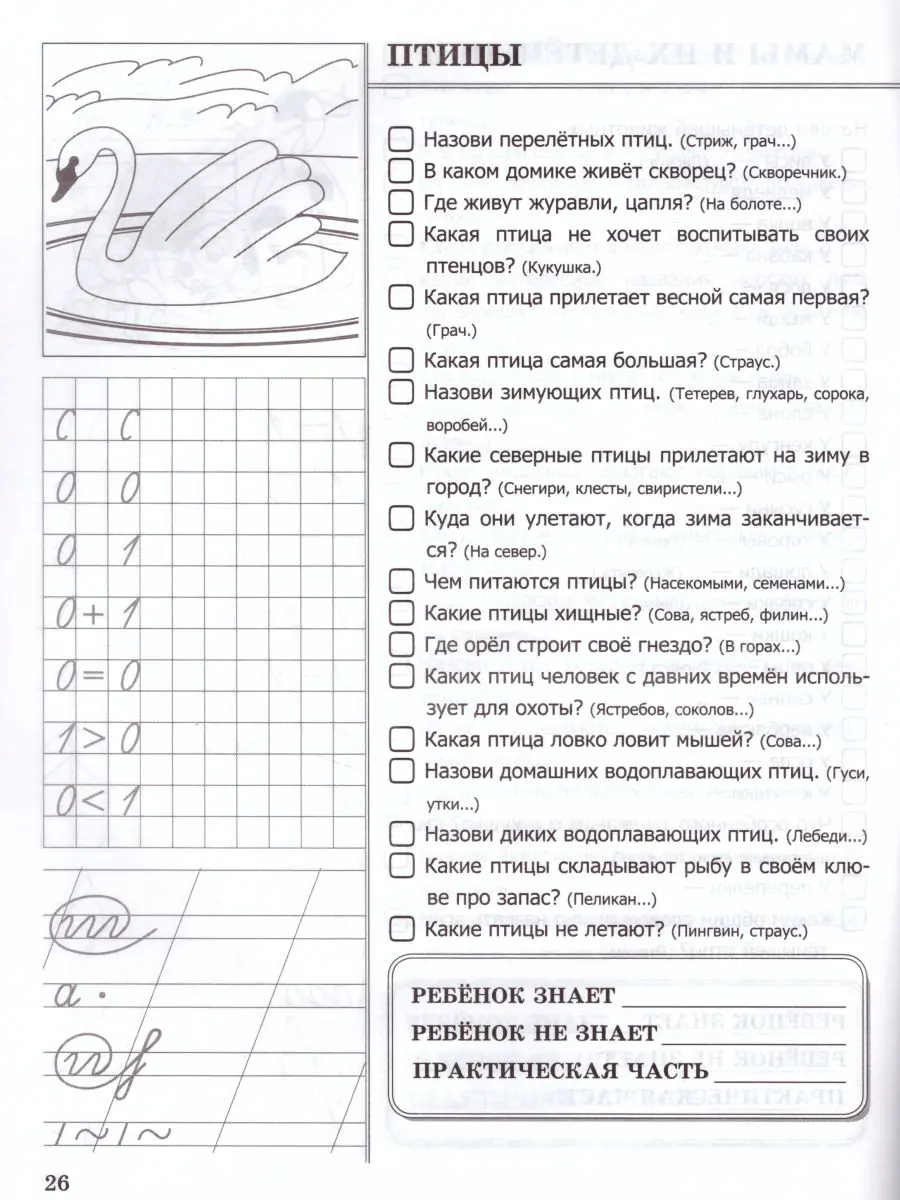 ПТИЦЫ
Назови перелётных птиц. (Стриж, грач...)
В каком домике живёт скворец? (Скворечник.)
Где живут журавли, цапля? (На болоте...)
Какая птица не хочет воспитывать своих
птенцов? (Кукушка.)
Какая птица прилетает весной самая первая?
(Грач.)
Какая птица самая большая? (Страус.)
Назови зимующих птиц. (Тетерев, глухарь, сорока,
воробей...)
Какие северные птицы прилетают на зиму в
город? (Снегири, клесты, свиристели...)
Куда они улетают, когда зима заканчивает-
ся? (На север.)
Чем питаются птицы? (Насекомыми, семенами...)
Какие птицы хищные? (Сова, ястреб, филин...)
Где орёл строит своё гнездо? (В горах...)
Каких птиц человек с давних времён исполь-
зует для охоты? (Ястребов, соколов...)
Какая птица ловко ловит мышей? (Сова...)
Назови домашних водоплавающих птиц. (Гуси,
утки...)
Назови диких водоплавающих птиц. (Лебеди...)
Какие птицы складывают рыбу в своём клю-
ве про запас? (Пеликан...)
Какие птицы не летают? (Пингвин, страус.)
РЕБЁНОК ЗНАЕТ
РЕБЁНОК НЕ ЗНАЕТ
ПРАКТИЧЕСКАЯ ЧАСТЬ
С С
0 0
0 1
0 + 1
0 = 0
1 > 0
0 < 1
а .
26